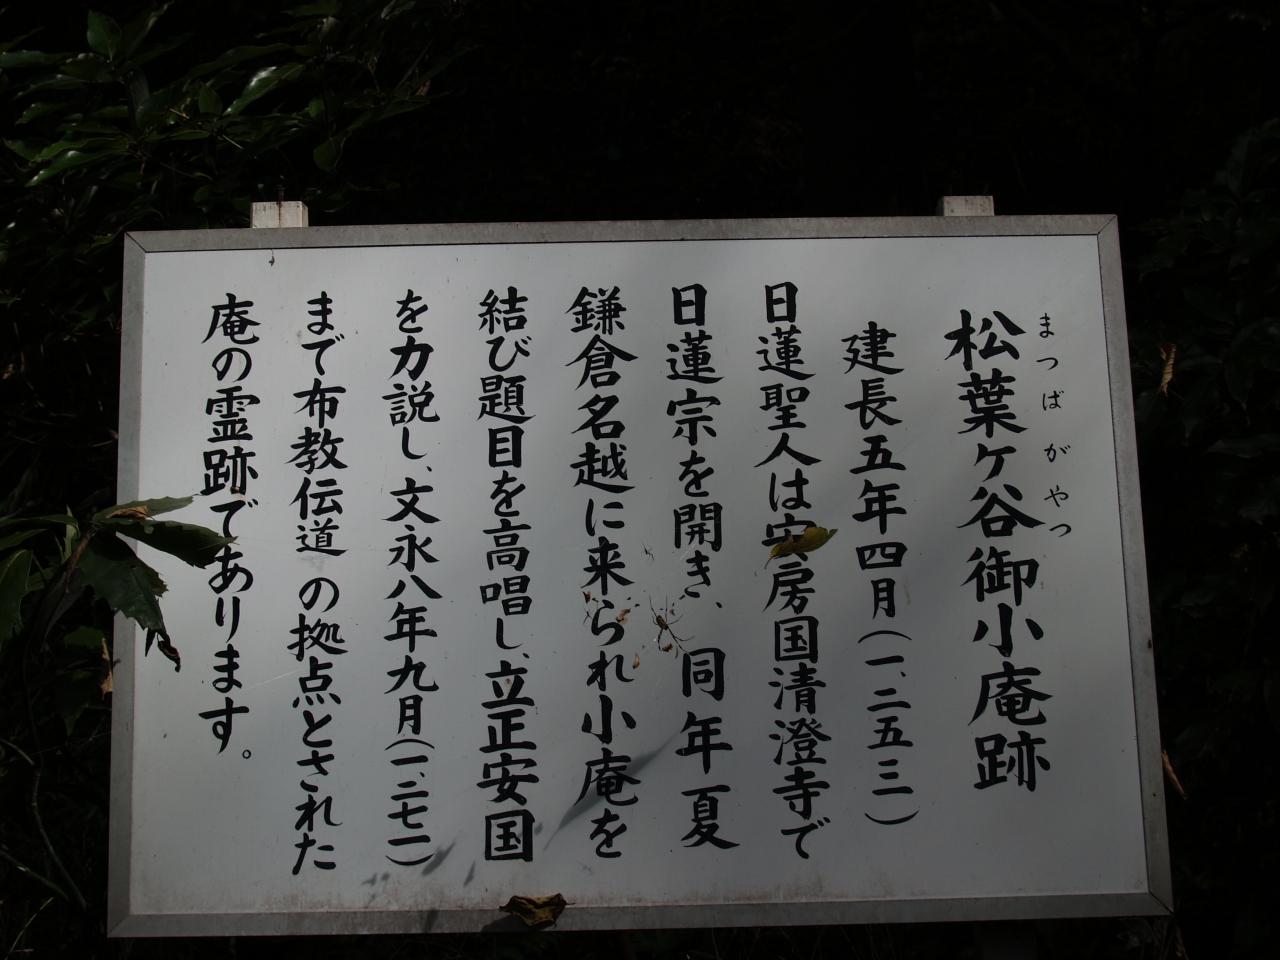 松葉ケ谷御小庵跡
まつばがやつ
建長五年四月(一、二五三)
日蓮聖人は安房国清澄寺で
日蓮宗を開き、同年夏
鎌倉名越に来られ小庵を
結び題目を高唱し、立正安国
を力説し、文永八年九月(一、二七一)
まで布教伝道の拠点とされた
庵の霊跡であります。